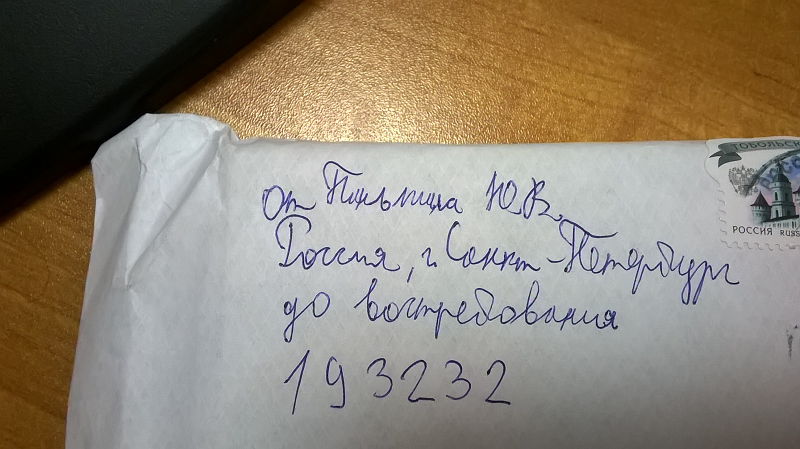 От Пильпила Ю.В.
Россия, г. Санкт-Петербург
до востребования
193232
ТОБОЛЬСК
РОССИЯ RUSS